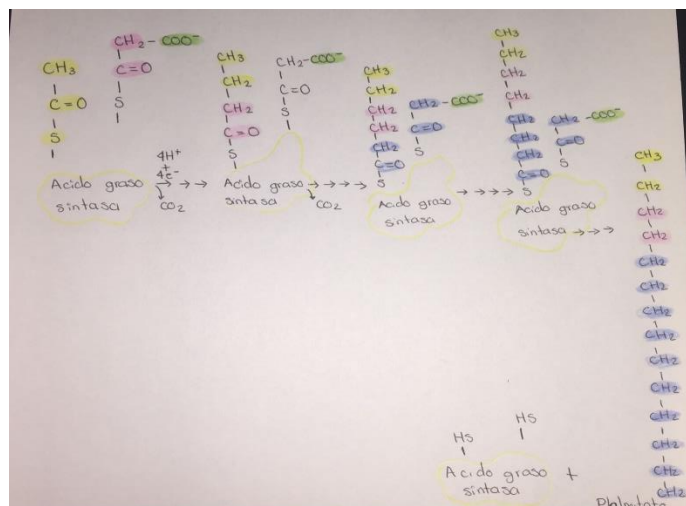 CH₃
C=O
S
CH₂-COO⁻
C=O
S
Acido graso
sintasa
4H⁺
+
4e⁻
→ → →
CO₂
CH₃
CH₂
CH₂
C=O
S
CH₂-COO⁻
C=O
S
Acido graso →→→→
sintasa
CO₂
CH₃
CH₂
CH₂
CH₂
CH₂
C=O
S
CH₂-COO⁻
C=O
S
Acido graso
sintasa
→→→→
CH₃
CH₂
CH₂
CH₂
CH₂
CH₂
CH₂
C=O
S
CH₂-COO⁻
C=O
S
Acido graso
sintasa →→→
CH₃
CH₂
CH₂
CH₂
CH₂
CH₂
CH₂
CH₂
CH₂
CH₂
CH₂
CH₂
CH₂
CH₂
HS
HS
Acido graso +
sintasa